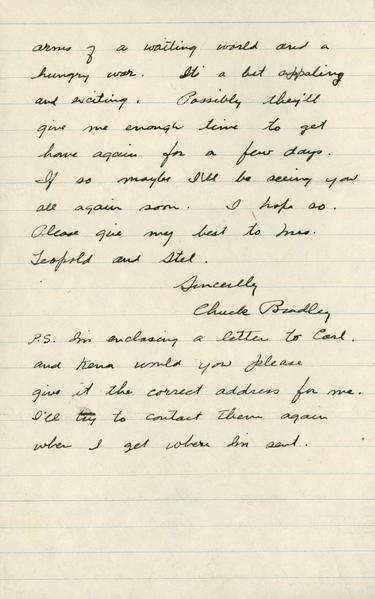 arms of a waiting world and a
hungry war. It's a bit appaling
and exciting. Possibly they'll
give me enough time to get
home again for a few days.
If so maybe I'll be seeing you
all again soon. I hope so.
Please give my best to Mrs.
Leopold and Stel.
Sincerelly
Chuck Bradley
P.S. I'm enclosing a letter to Carl.
and Kena would you please
give it the correct address for me.
I'll try to contact them again
when I get where I'm sent.